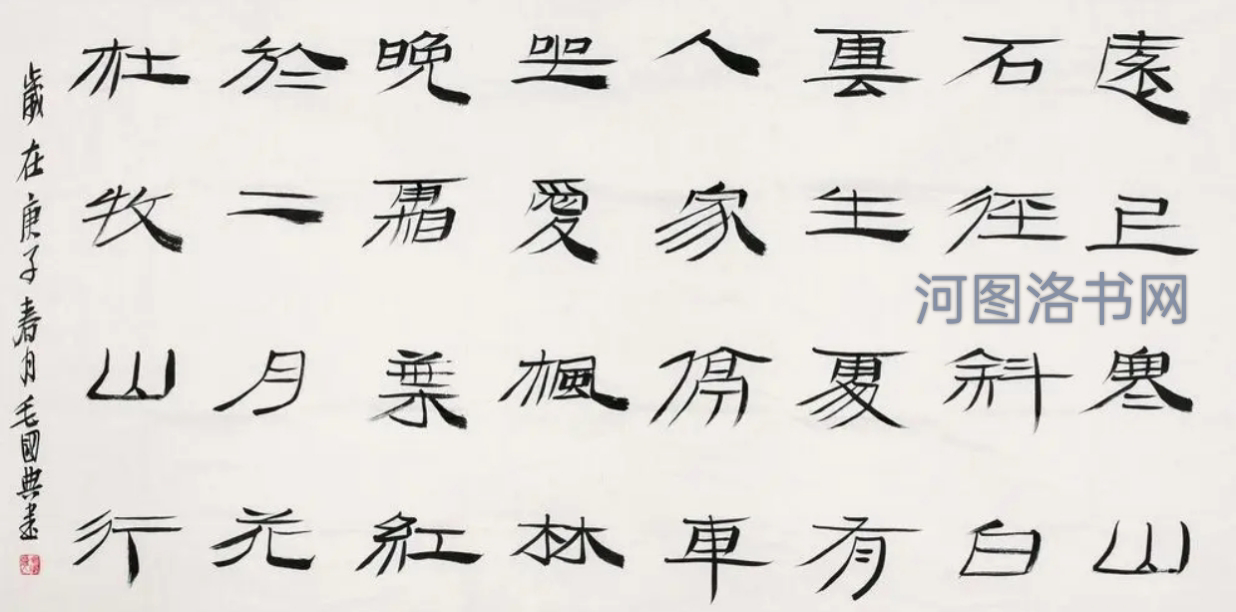 遠上寒山
石徑斜白
雲生處有
人家停車
坐愛楓林
晚霜葉紅
於二月花
杜牧山行
歲在庚子春月毛國典書
河图洛书网